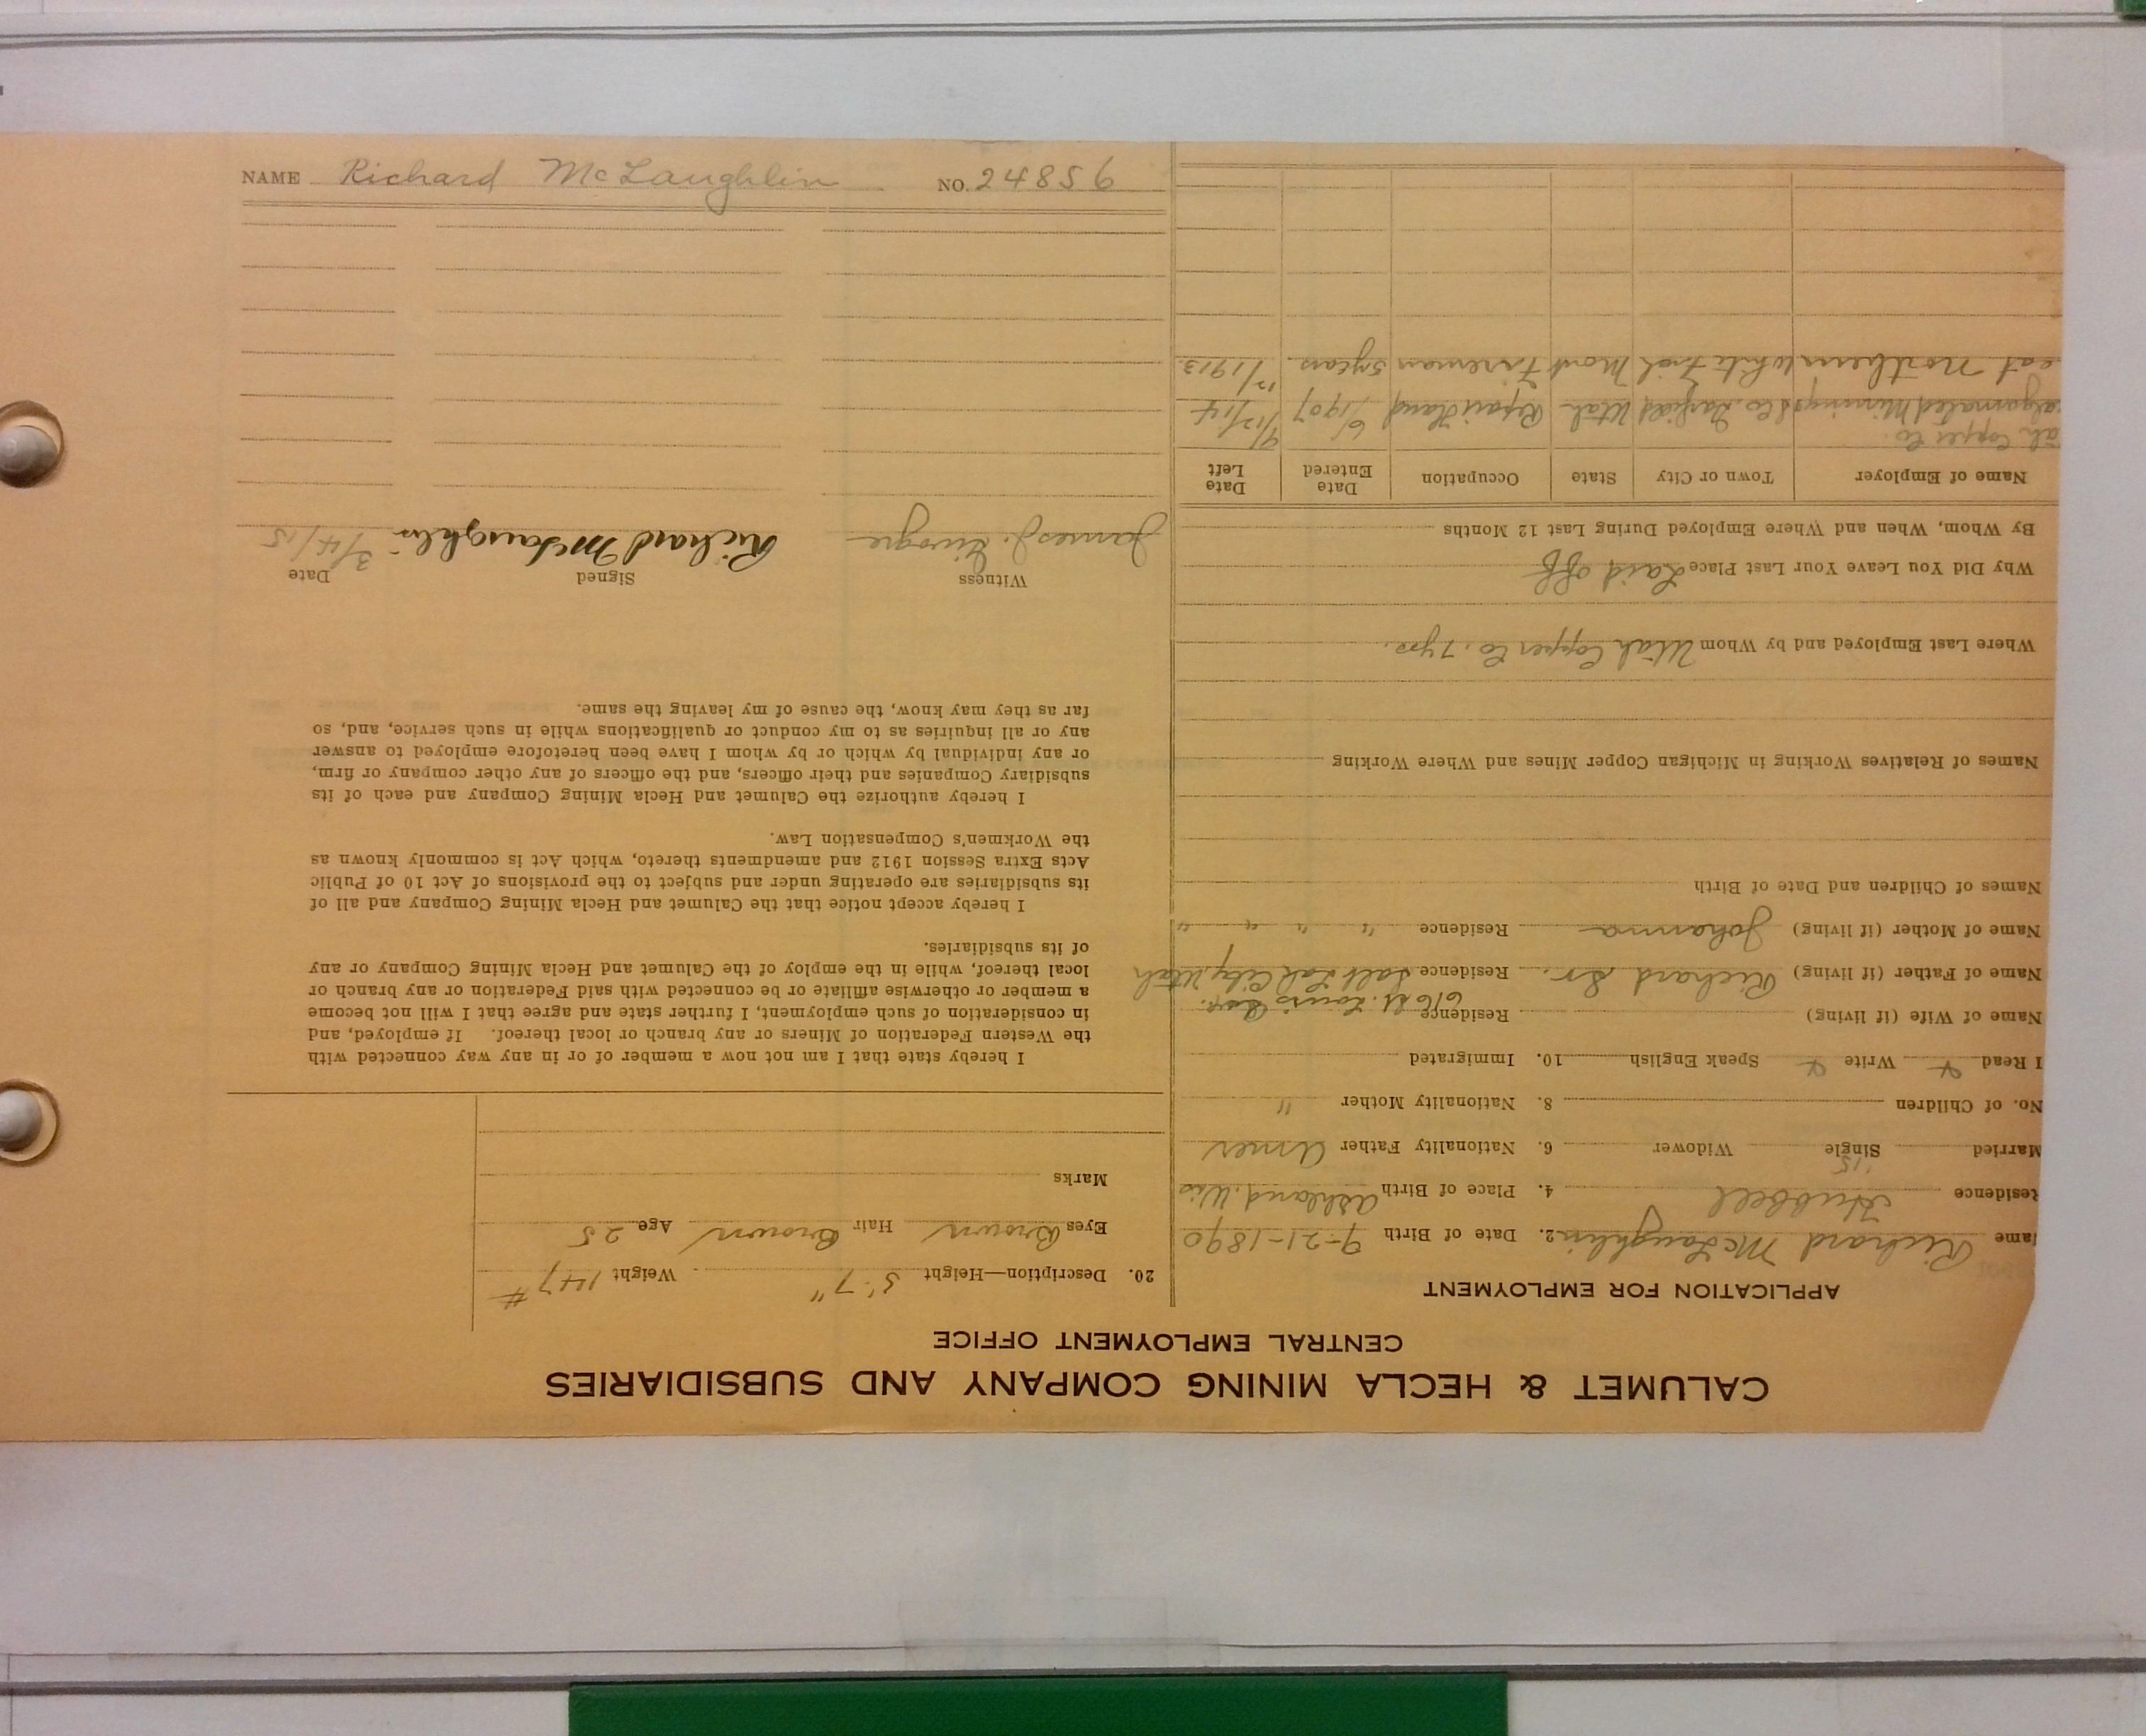 NAME Richard McLaughlin NO. 24856
CALUMET & HECLA MINING COMPANY AND SUBSIDIARIES
CENTRAL EMPLOYMENT OFFICE
APPLICATION FOR EMPLOYMENT
ame Richard McLaughlin 2. Date of Birth 9-21-1890
Residence Hubbell 4. Place of Birth Ashland. Wis
Married Single Widower 6. Nationality Father Amer
No. of Children 8. Nationality Mother "
I Read Write Speak English 10. Immigrated
Name of Wife (if living) Residence
616 St. Louis
Name of Father (if living) Richard Sr. Residence Salt Lak City, Utah
Name of Mother (if living) Johanna Residence " " " "
Names of Children and Date of Birth
Names of Relatives Working in Michigan Copper Mines and Where Working
Where Last Employed and by Whom Utah Copper Co. 7 yrs.
Why Did You Leave Your Last Place Laid off
By Whom, When and Where Employed During Last 12 Months
Name of Employer Town or City State Occupation Date Entered Date Left
ah Copper Co.
algamated Minning & Co. Garfield Utah Repair Hand 6/1907 9/12/14
eat Northern White Fish Mont Fireman 5 years. 12/1913
20. Description—Height 5'-7" Weight 147 #
Eyes Brown Hair Brown Age 25
Marks
I hereby state that I am not now a member of or in any way connected with
the Western Federation of Miners or any branch or local thereof. If employed, and
in consideration of such employment, I further state and agree that I will not become
a member or otherwise affiliate or be connected with said Federation or any branch or
local thereof, while in the employ of the Calumet and Hecla Mining Company or any
of its subsidiaries.
I hereby accept notice that the Calumet and Hecla Mining Company and all of
its subsidiaries are operating under and subject to the provisions of Act 10 of Public
Acts Extra Session 1912 and amendments thereto, which Act is commonly known as
the Workmen's Compensation Law.
I hereby authorize the Calumet and Hecla Mining Company and each of its
subsidiary Companies and their officers, and the officers of any other company or firm,
or any individual by which or by whom I have been heretofore employed to answer
any or all inquiries as to my conduct or qualifications while in such service, and, so
far as they may know, the cause of my leaving the same.
Witness Signed Date
James J. Richard McLaughlin 3/4/15